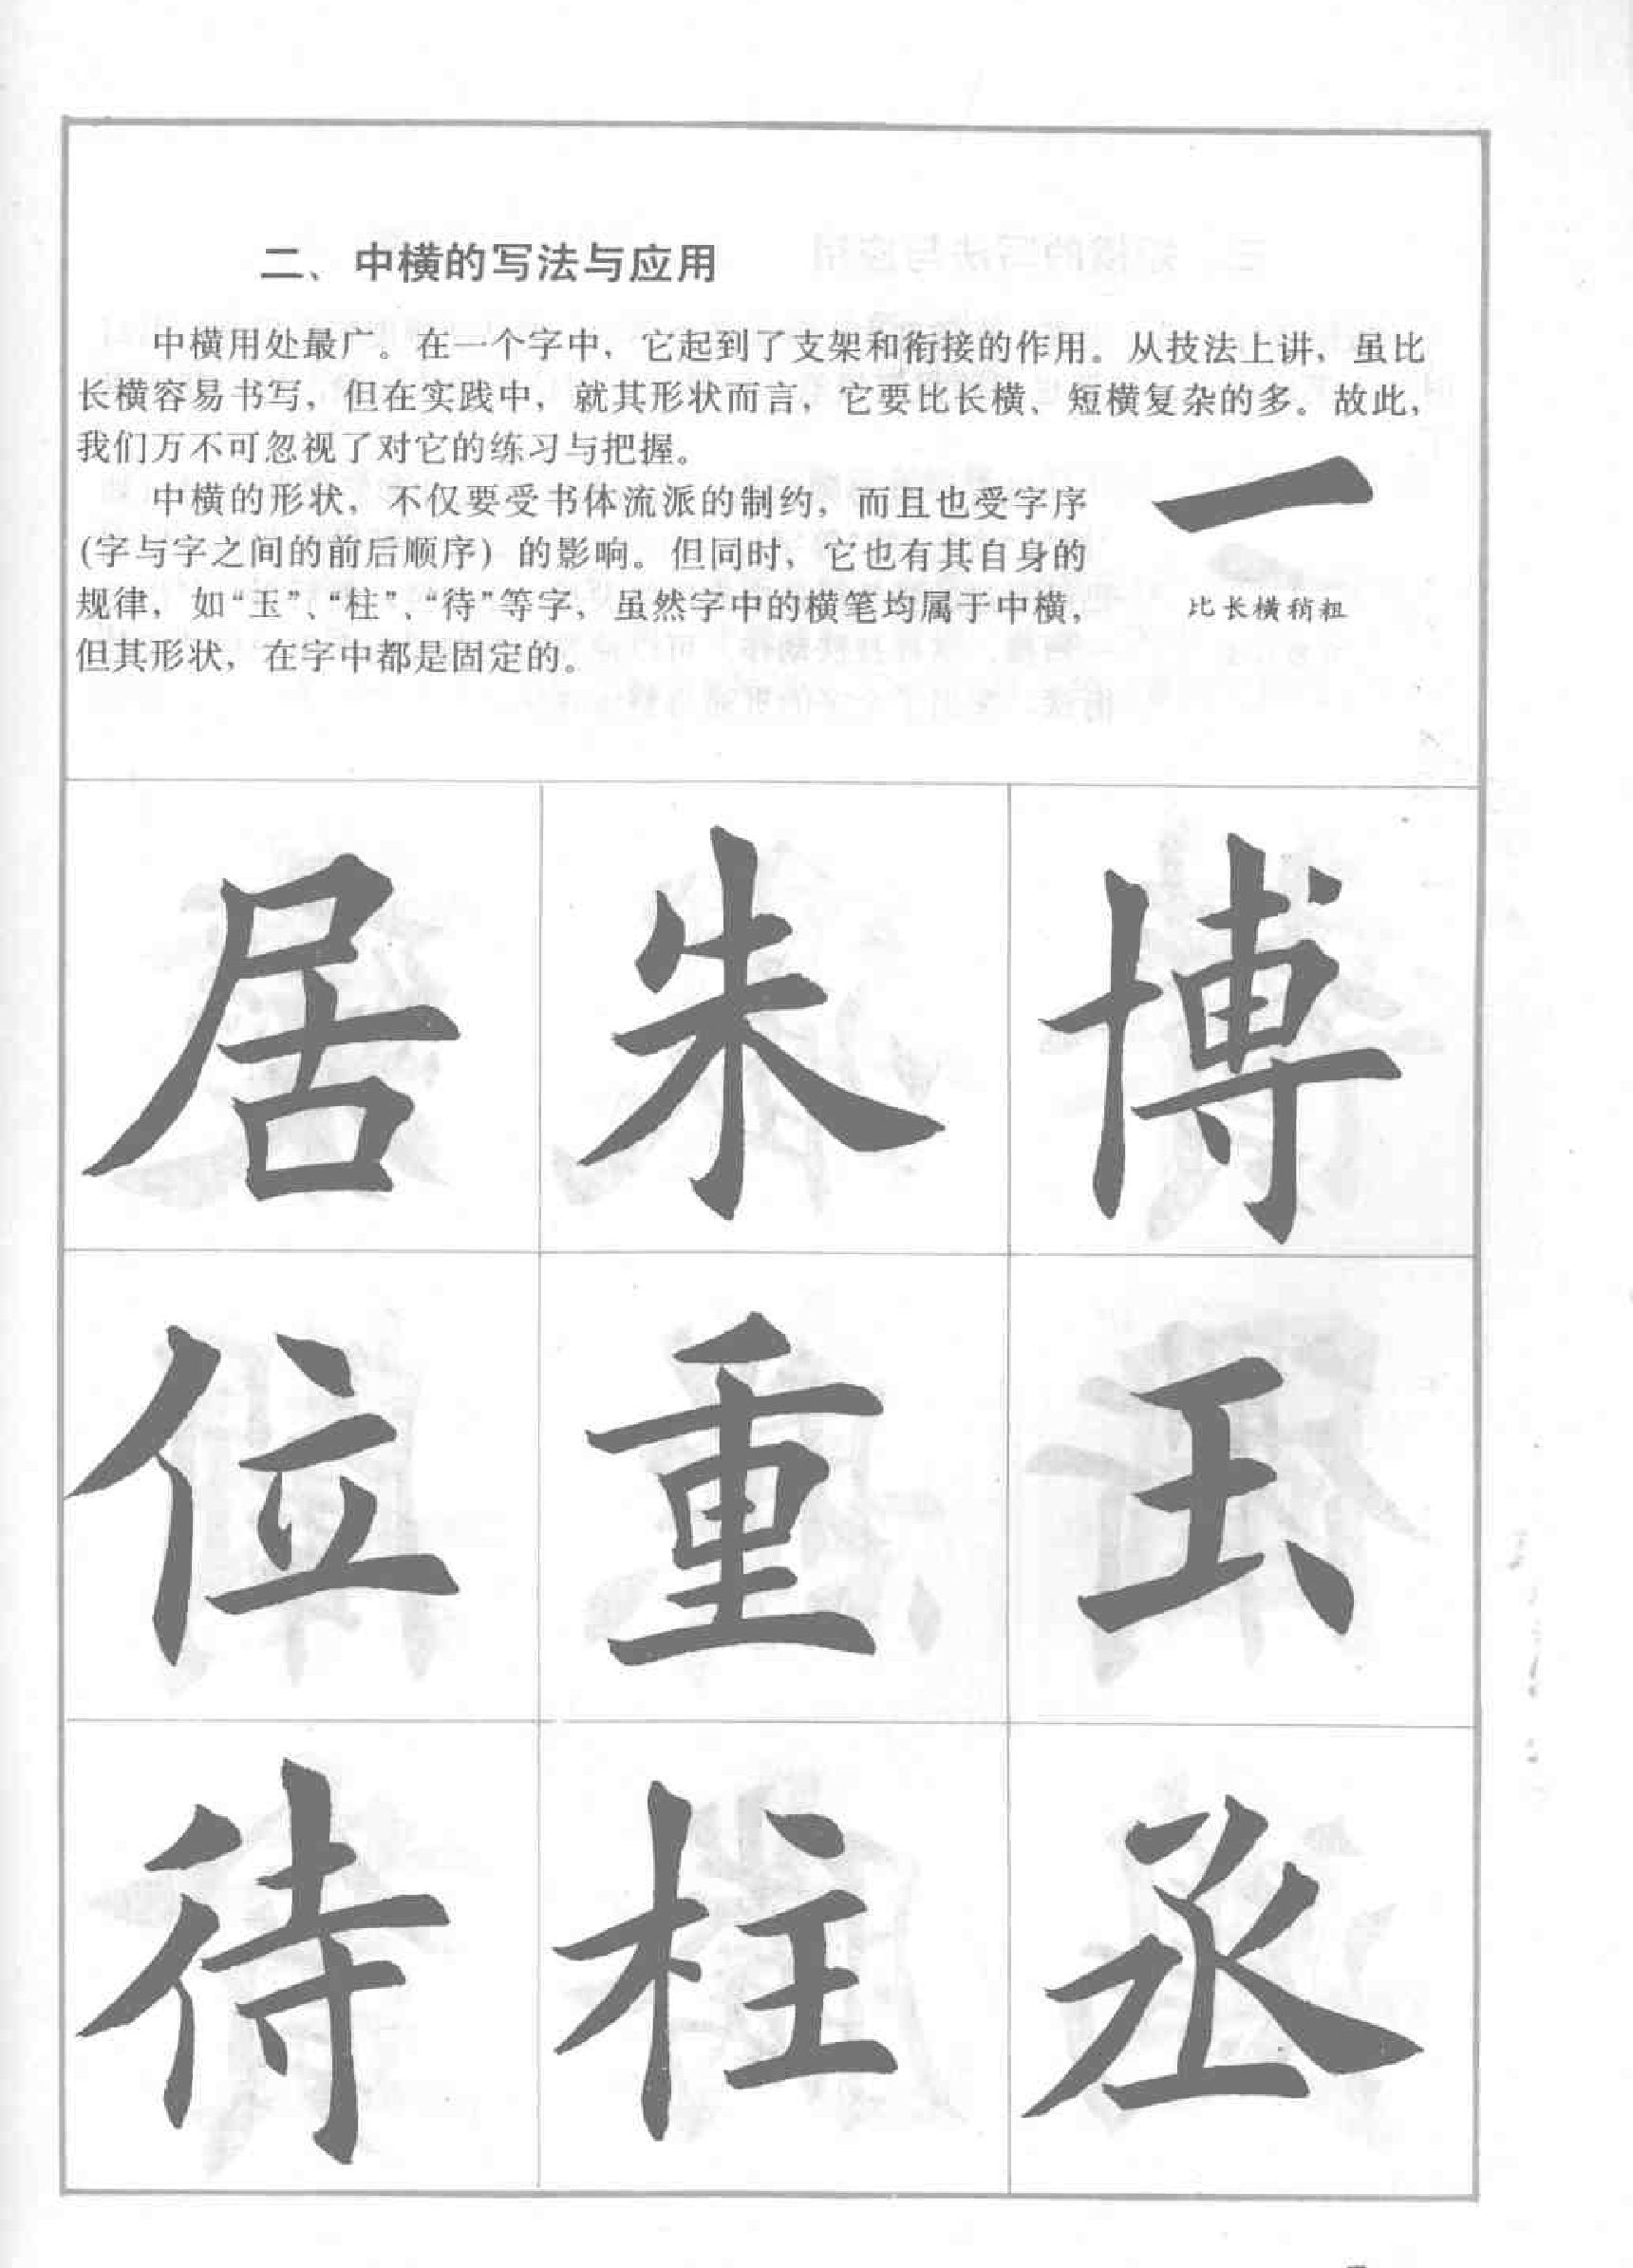 二、中横的写法与应用
中横用处最广。在一个字中，它起到了支架和衔接的作用。从技法上讲，虽比
长横容易书写，但在实践中，就其形状而言，它要比长横、短横复杂的多。故此，
我们万不可忽视了对它的练习与把握。
中横的形状，不仅要受书体流派的制约，而且也受字序
(字与字之间的前后顺序) 的影响。但同时，它也有其自身的
规律，如“玉”、“柱”、“待”等字，虽然字中的横笔均属于中横，
但其形状，在字中都是固定的。
一
比长横稍粗
居 朱 博
位 重 玉
待 柱 丞